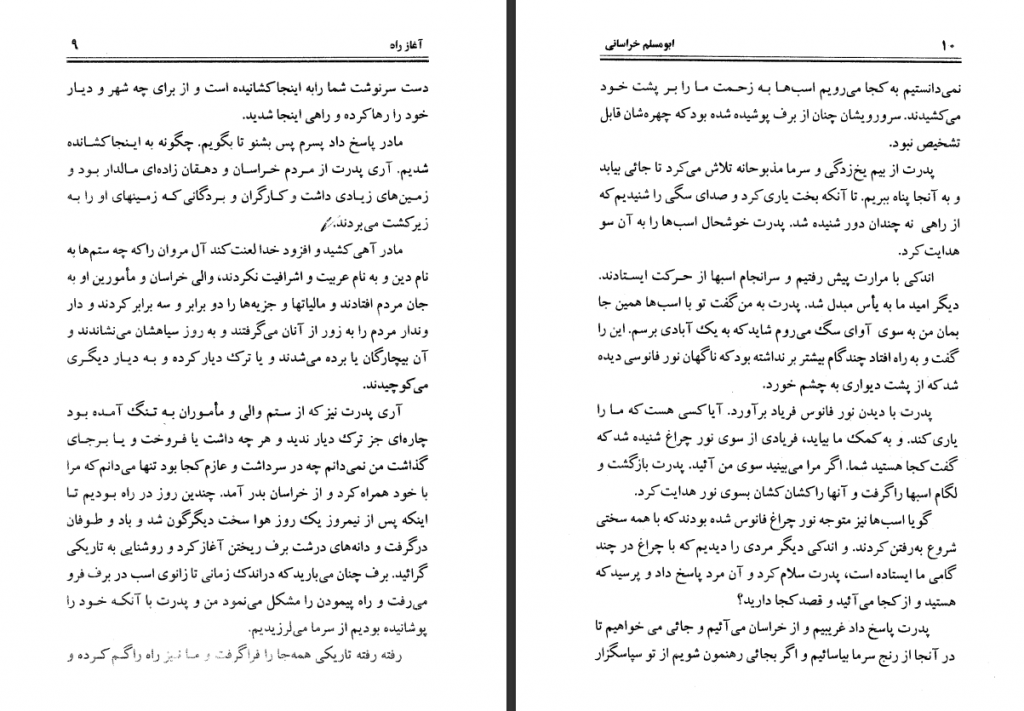 آغاز راه ۹
دست سرنوشت شما رابه اینجا کشانیده است و از برای چه شهر و دیار
خود را رها کرده و راهی اینجا شدید.
مادر پاسخ داد پسرم پس بشنو تا بگویم. چگونه به اینجا کشانده
شدیم. آری پدرت از مردم خراسان و دهقان زاده‌ای مالدار بود و
زمین‌های زیادی داشت و کارگران و بردگانی که زمینهای او را به
زیرکشت می‌بردند.
مادر آهی کشید و افزود خدا لعنت کند آل مروان را که چه ستم‌ها به
نام دین و به نام عربیت و اشرافیت نکردند، والی خراسان و مأمورین او به
جان مردم افتادند و مالیاتها و جزیه‌ها را دو برابر و سه برابر کردند و دار
وندار مردم را به زور از آنان می‌گرفتند و به روز سیاهشان می‌نشاندند و
آن بیچارگان یا برده می‌شدند و یا ترک دیار کرده و به دیار دیگری
می‌کوچیدند.
آری پدرت نیز که از ستم والی و مأموران به تنگ آمده بود
چاره‌ای جز ترک دیار ندید و هر چه داشت یا فروخت و یا برجای
گذاشت من نمی‌دانم چه در سرداشت و عازم کجا بود تنها می‌دانم که مرا
با خود همراه کرد و از خراسان بدر آمد. چندین روز در راه بودیم تا
اینکه پس از نیمروز یک روز هوا سخت دیگرگون شد و باد و طوفان
درگرفت و دانه‌های درشت برف ریختن آغاز کرد و روشنایی به تاریکی
گرائید. برف چنان می‌بارید که دراندک زمانی تا زانوی اسب در برف فرو
می‌رفت و راه پیمودن را مشکل می‌نمود من و پدرت با آنکه خود را
پوشانیده بودیم از سرما می‌لرزیدیم.
رفته رفته تاریکی همه‌جا را فراگرفت و ما نیز راه راگم کرده و
۱۰ ابومسلم خراسانی
نمی‌دانستیم به کجا می‌رویم اسب‌ها به زحمت ما را بر پشت خود
می‌کشیدند. سرورویشان چنان از برف پوشیده شده بود که چهره‌شان قابل
تشخیص نبود.
پدرت از بیم یخ‌زدگی و سرما مذبوحانه تلاش می‌کرد تا جائی بیابد
و به آنجا پناه ببریم. تا آنکه بخت یاری کرد و صدای سگی را شنیدیم که
از راهی نه چندان دور شنیده شد. پدرت خوشحال اسب‌ها را به آن سو
هدایت کرد.
اندکی با مرارت پیش رفتیم و سرانجام اسبها از حرکت ایستادند.
دیگر امید ما به یأس مبدل شد. پدرت به من گفت تو با اسب‌ها همین جا
بمان من به سوی آوای سگ می‌روم شاید که به یک آبادی برسم. این را
گفت و به راه افتاد چندگام بیشتر بر نداشته بود که ناگهان نور فانوسی دیده
شد که از پشت دیواری به چشم خورد.
پدرت با دیدن نور فانوس فریاد برآورد. آیا کسی هست که ما را
یاری کند. و به کمک ما بیاید، فریادی از سوی نور چراغ شنیده شد که
گفت کجا هستید شما. اگر مرا می‌بینید سوی من آئید. پدرت بازگشت و
لگام اسبها راگرفت و آنها راکشان کشان بسوی نور هدایت کرد.
گویا اسب‌ها نیز متوجه نور چراغ فانوس شده بودند که با همه سختی
شروع به‌رفتن کردند. و اندکی دیگر مردی را دیدیم که با چراغ در چند
گامی ما ایستاده است، پدرت سلام کرد و آن مرد پاسخ داد و پرسید که
هستید و از کجا می‌آئید و قصد کجا دارید؟
پدرت پاسخ داد غریبیم و از خراسان می‌آئیم و جائی می خواهیم تا
در آنجا از رنج سرما بیاسائیم و اگر بجائی رهنمون شویم از تو سپاسگزار